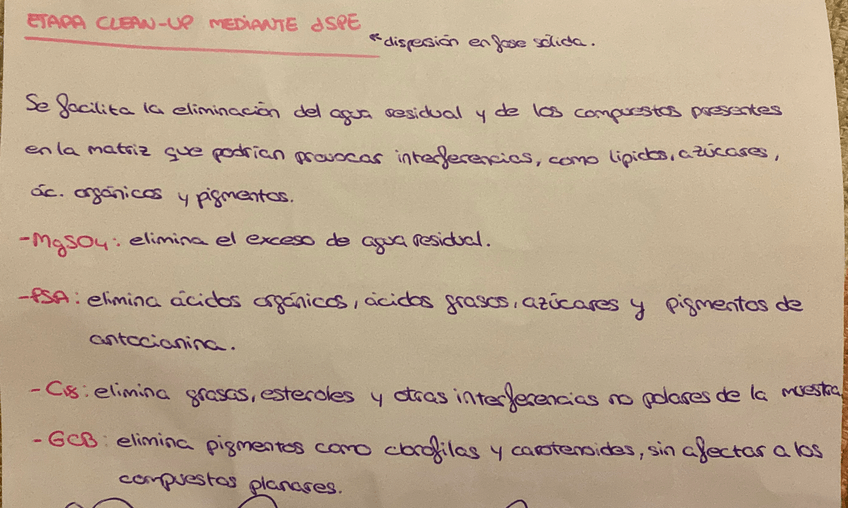 ETAPA CLEAN-UP MEDIANTE dSPE
*dispersión en fase sólida.
Se facilita la eliminación del agua residual y de los compuestos presentes
en la matriz que podrían provocar interferencias, como lípidos, azúcares,
ác. orgánicos y pigmentos.
-MgSO4: elimina el exceso de agua residual.
-PSA: elimina ácidos orgánicos, ácidos grasos, azúcares y pigmentos de
antocianina.
-C18: elimina grasas, esteroles y otras interferencias no polares de la muestra
-GCB: elimina pigmentos como clorofilas y carotenoides, sin afectar a los
compuestos planares.